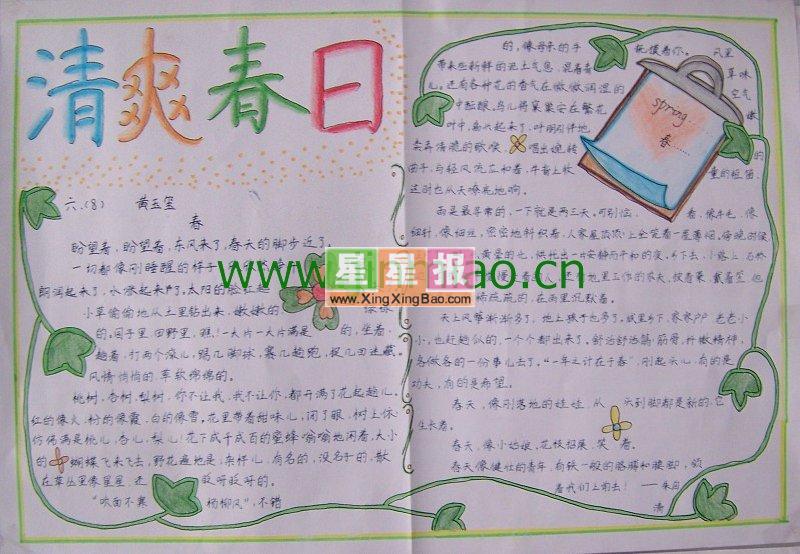 清爽春日
六.(8) 黄玉
春
盼望着,盼望着,东风来了,春天的脚步近了。
一切都像刚睡醒的样子
朗润起来了,水涨起来了,太阳的脸
小草偷偷地从土里钻出来,嫩嫩的
的。园子里,田野里,瞧!一大片一大片满是 的,坐着,
趟着,打两个滚儿,踢几脚球,赛几趟跑,捉几回迷藏。
风情悄悄的,草软绵绵的。
桃树、杏树、梨树,你不让我,我不让你,都开满了花赶趟儿。
红的像火,粉的像霞,白的像雪。花里带着甜味儿,闭了眼,树上
仿佛满是桃儿、杏儿、梨儿!花下成千成百的蜜蜂嗡嗡地闹着,大小
的 蝴蝶飞来飞去,野花遍地是:杂样儿,有名的,没名子的,散
在草丛里像星星,还 眨呀眨的。
"吹面不寒 杨柳风",不错
的,像母亲的手 抚摸着你。 风里
带来些新鲜的泥土气息,混着青 草味
儿,还有各种花的香气在微微润湿的 空气
中酝酿。鸟儿将窠巢安在繁花
叶中,高兴起来了,呼朋引伴地
卖弄清脆的歌喉, 唱出婉转 的
曲子,与轻风流应和着。牛背上牧 童的短笛,
这时也从天嘹亮地响。
雨是最寻常的,一下就是两三天。可别恼, 看,像牛毛,像
细针,像细丝,密密地斜织着,人家屋顶顶上全笼着一层薄烟。傍晚时候
黄晕的光,烘托出一片安静而平和的夜。乡下去,小路上,石桥
慢 着 还有地里工作的农夫,披着蓑,戴着笠,但
稀疏疏的,在雨里沉默着。
天上风筝渐渐多了,地上孩子也多了。城里乡下,家家户户,老老小
小,也赶趟似的,一个个都出来了。舒活舒活筋骨,抖擞精神,
各做各的一份事儿去了。"一年之计在于春",刚起头儿,有的是
功夫,有的是希望。
春天,像刚落地的娃娃,从 头到脚都是新的,它
生长着。
春天,像小姑娘,花枝招展,笑 着。
春天像健壮的青年,有铁一般的胳膊和腰脚,领
着我们上前去! ——朱自
清
spring
春
www. ao.cn
星星报
www.XingXingBao.com